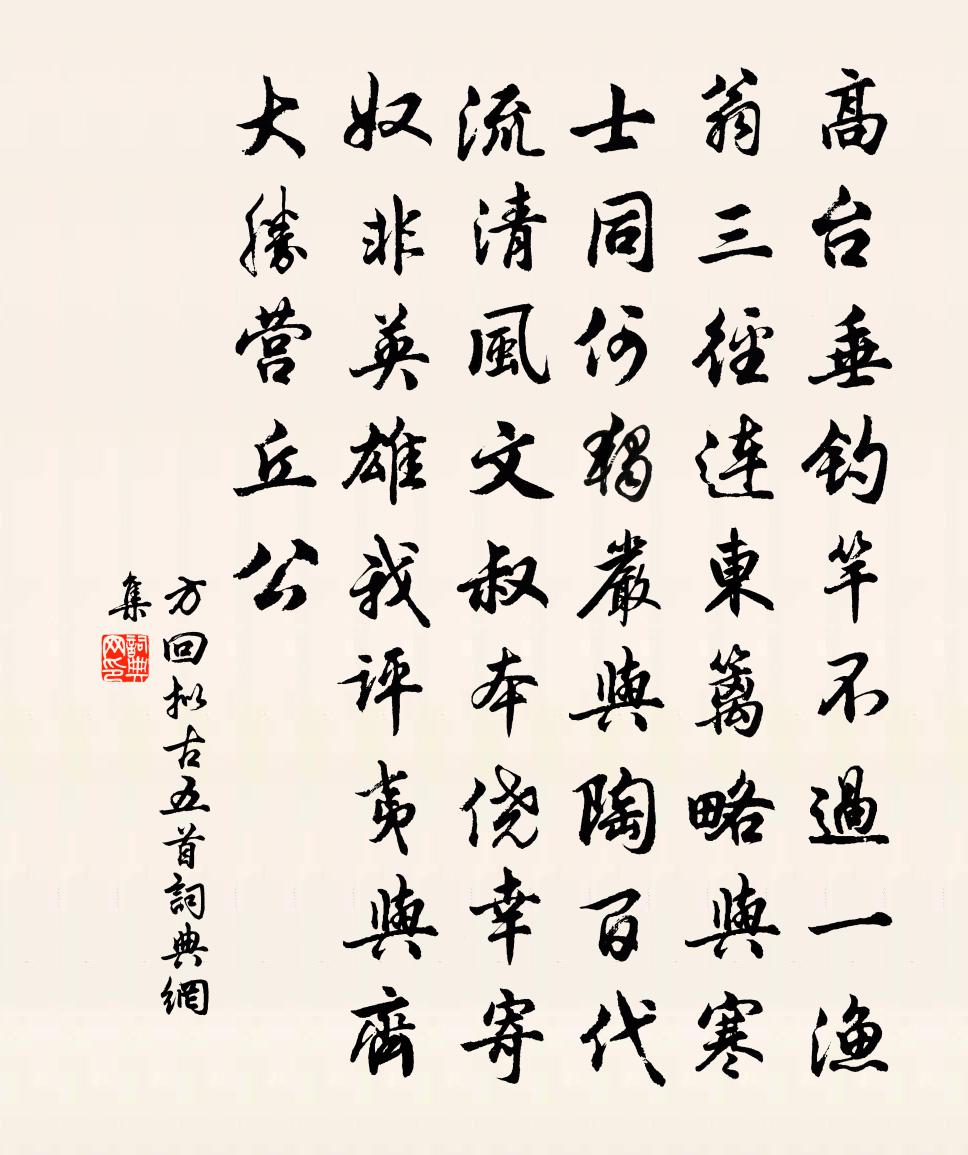 高台垂钓竿不過一漁
翁三徑連東籬略與寒
士同何獨嚴與陶百代
流清風文叔本僥幸寄
奴非英雄我評夷與齊
大勝营丘公
方回拟古五首詞典網
集
詞典网印